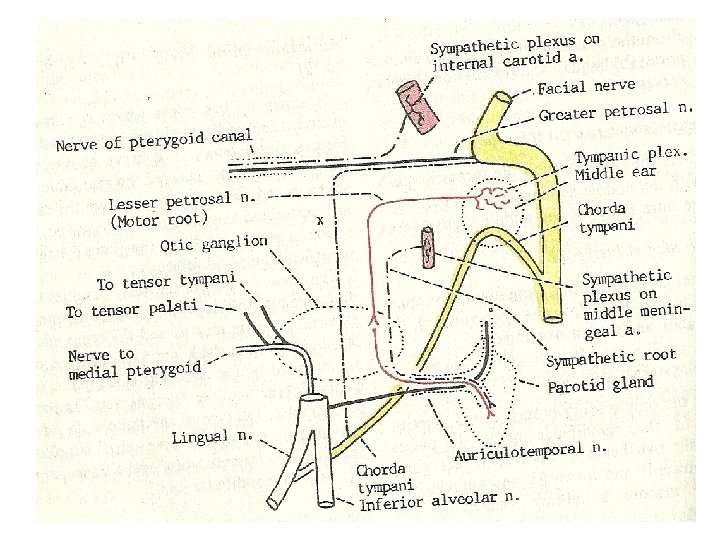 Sympathetic plexus on
internal carotid a.
Facial nerve
Greater petrosal n.
Nerve of pterygoid canal
Tympanic plex.
Middle ear
Lesser petrosal n.
(Motor root)
x
Chorda
tympani
Otic ganglion
To tensor tympani
To tensor palati
Sympathetic
plexus on
middle menin-
geal a.
Nerve to
medial pterygoid
Sympathetic root
Parotid gland
Lingual n.
Auriculotemporal n.
Chorda
tympani
Inferior alveolar n.